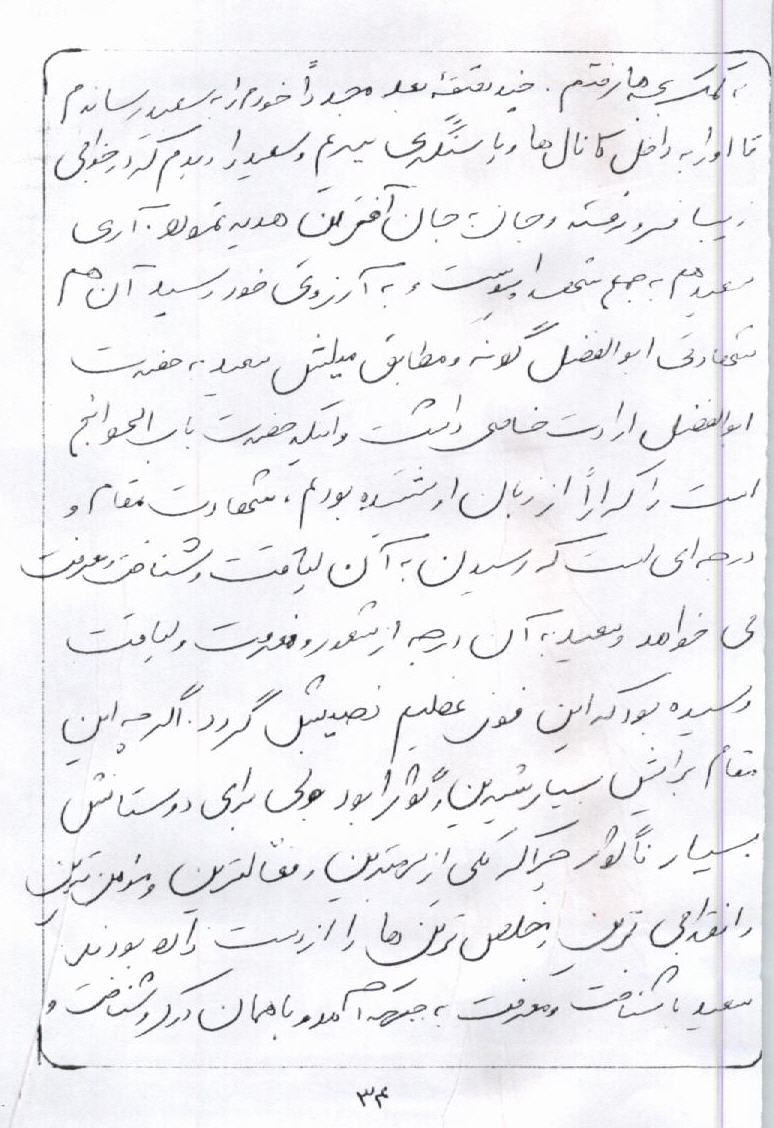 به کمک بچه ها رفتم. چند دقیقه بعد مجدداً خودم را به سعید رساندم
تا او را به داخل کانال ها و یا سنگری ببرم و سعید را دیدم که در خوابی
زیبا فرو رفته و جان به جان آفرین هدیه نموده. آری
سعید هم به جمع شهدا پیوست و به آرزوی خود رسید آن هم
شهادتی ابوالفضل گونه و مطابق میلش سعید به حضرت
ابوالفضل ارادت خاصی داشت و اینکه حضرت باب الحوائج
است را کراراً از زبان او شنیده بودم، شهادت مقام و
درجه ای است که رسیدن به آن لیاقت و شناخت و معرفت
می خواهد و سعید به آن درجه از شعور و معرفت و لیاقت
رسیده بود که این فوز عظیم نصیبش گردد. اگر چه این
مقام برایش بسیار شیرین و گوارا بود ولی برای دوستانش
بسیار ناگوار چرا که یکی از بهترین و فعالترین و مؤمن ترین
و انقلابی ترین و مخلص ترین ها را از دست داده بودند.
سعید با شناخت و معرفت به جبهه آمد و با همان درک و شناخت و
۳۴